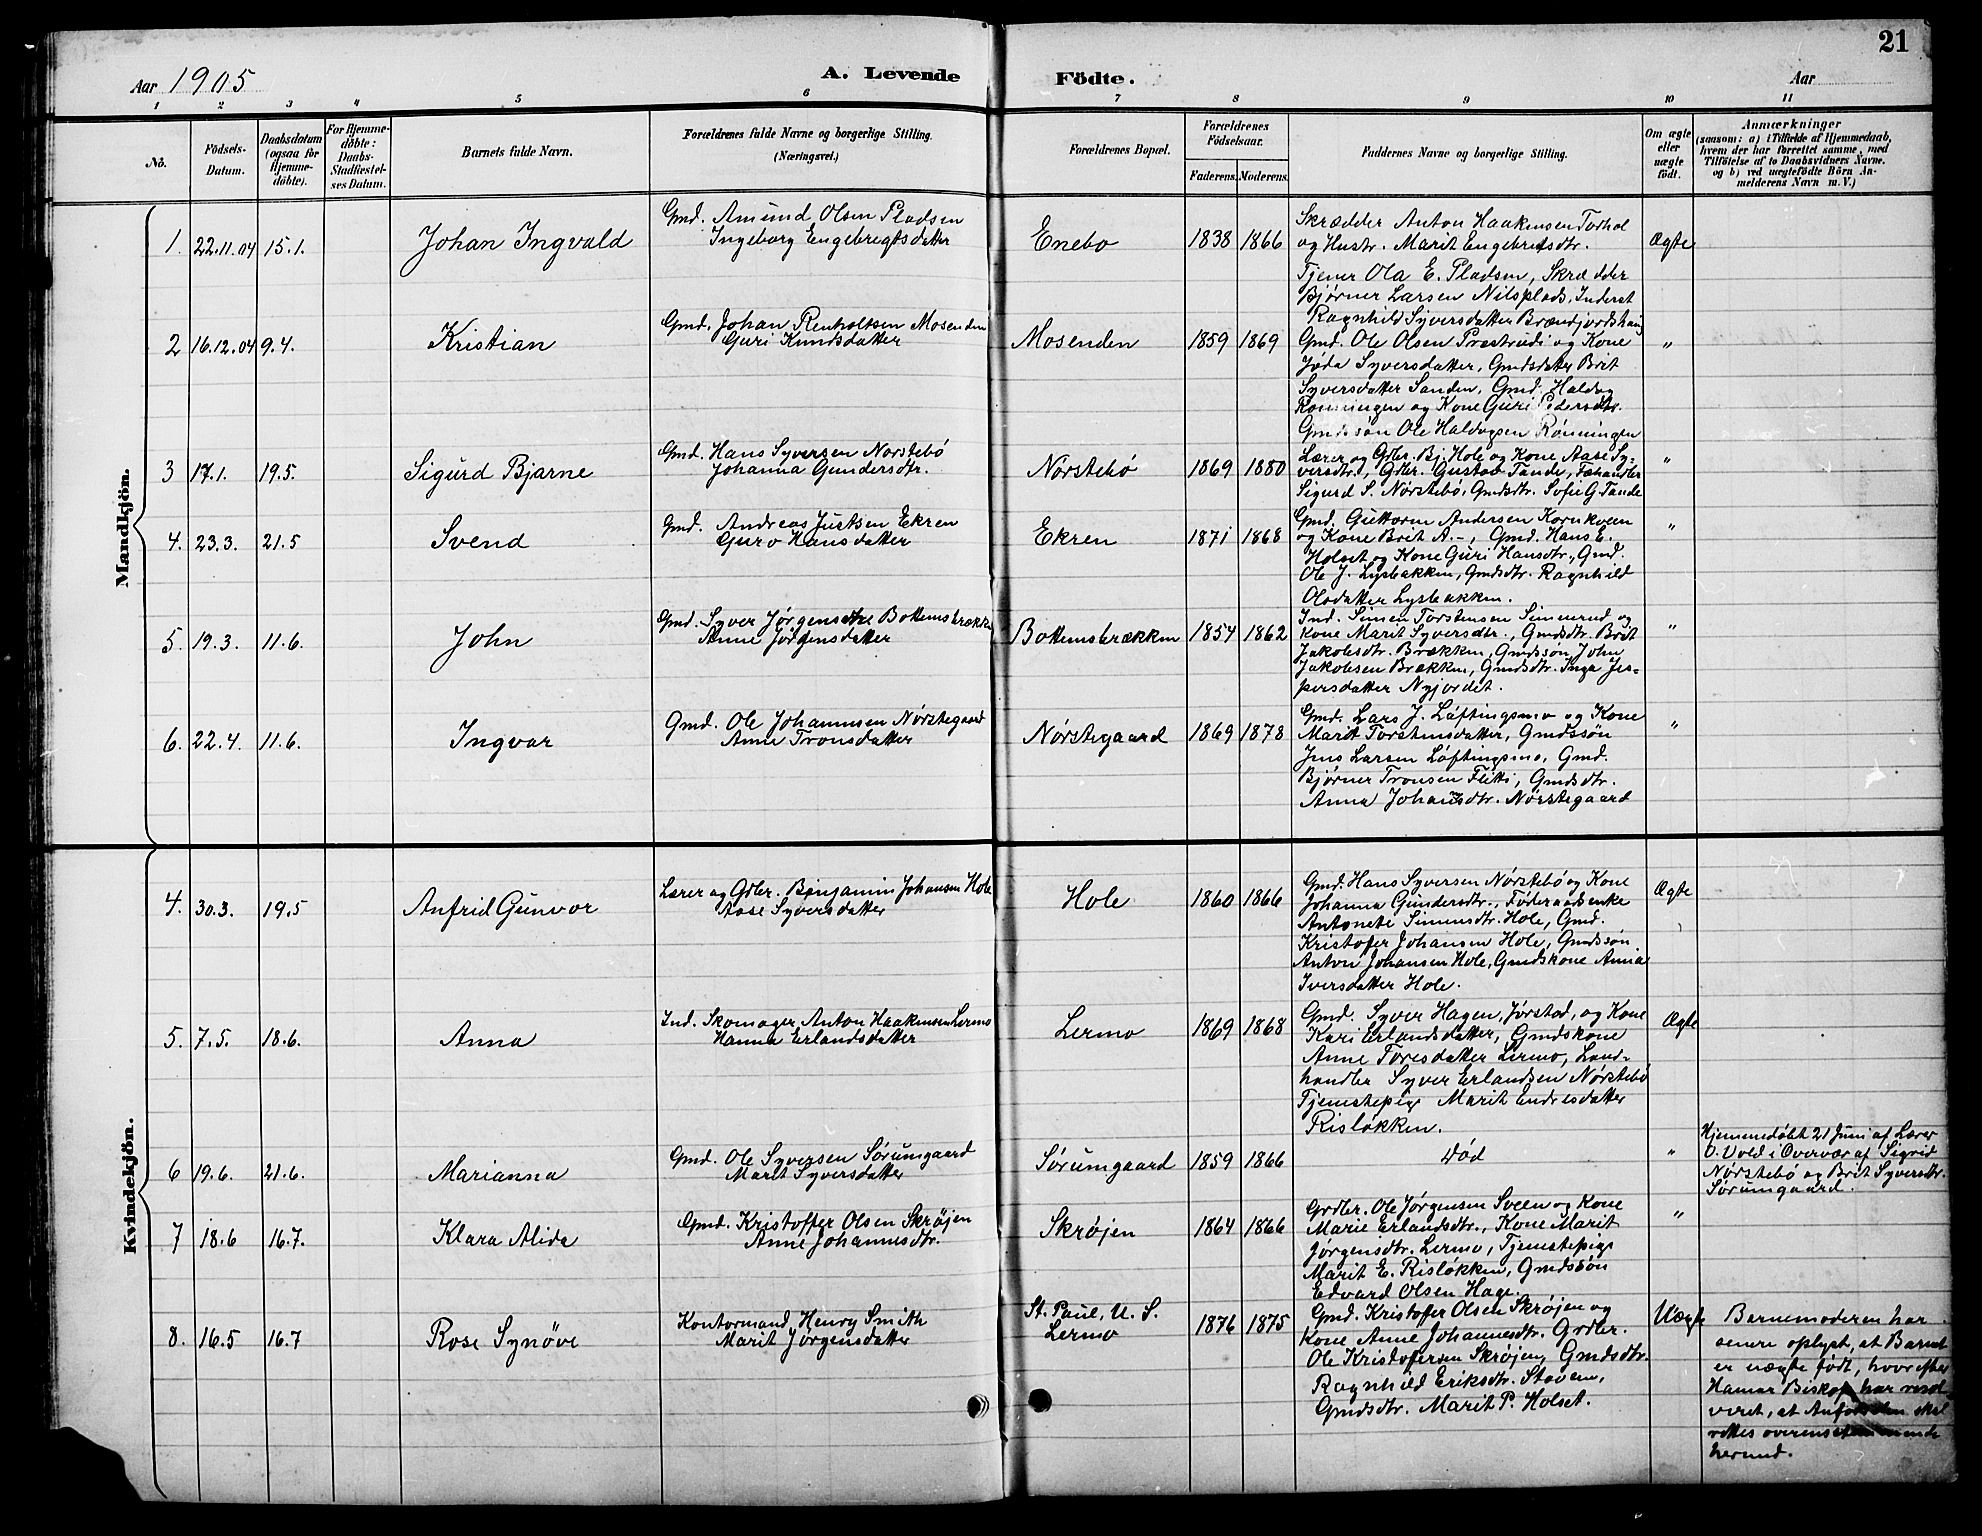 21
Aar 1905
A. Levende Födte.
Aar
1 2 3 4 5 6 7 8 9 10 11
No.
Födsels-
Datum.
Daabsdatum
(ogsaa for
Hjemme-
döbte).
For Hjemme-
døbte:
Daabs-
Stadfæstel-
ses Datum.
Barnets fulde Navn.
Forældrenes fulde Navne og borgerlige Stilling.
(Næringsvei.)
Forældrenes Bopæl.
Forældrenes
Födselsaar.
Faderens. Moderens.
Faddernes Navne og borgerlige Stilling.
Om ægte
eller
uægte
födt.
Anmærkninger
(saasom: a) i Tilfælde af Hjemmedaab,
hvem der har forrettet samme, med
Tilföielse af to Daabsvidners Navne.
og b) ved uægtefödte Börn An-
melderens Navn m. V.)
Mandkjön.
1. 22.11.04 15.1. Johan Ingvald
Gmd. Amund Olsen Pladsen
Ingeborg Engebregtsdatter
Enebo 1838 1866
Skrædder Anton Haakensen Torhol
og Hustr. Marit Engebretsdtr.
Tjener Ola E. Pladsen, Skrædder
Bjørner Larsen Nilsplads, Inderst
Ragnhild Syversdatter Brændjordshaug
Ægte
2 16.12.04 9.4. Kristian
Gmd. Johan Renholtsen Mosenden
Guri Knudsdatter
Mosenden 1859 1869
Gmd. Ole Olsen Præstrudi og Kone
Jøda Syversdatter, Gmdsdatter Brit
Syversdatter Sanden, Gmd. Haldvg
Rønningen og Kone Guri Pedersdtr.
Gmdssøn Ole Haldvgsen Rønningen
"
3 17.1. 19.5. Sigurd Bjarne
Gmd. Hans Syversen Norstebö
Johanna Gundersdtr.
Nørstebø 1869 1880
Lærer og Gdbr. Bj. Hole og Kone Aase Sy-
versdtr., Gdbr. Gustav Tande, Fæhandler
Sigurd S. Nørstebø, Gmdsdtr. Sofie G Tande
"
4. 23.3. 21.5 Svend
Gmd. Andreas Justsen Ekren
Guro Hansdatter
Ekren 1871 1868
Gmd. Guttorm Andersen Kornkveen
og Kone Brit A.-, Gmd. Hans E.
Holset og Kone Guri Hansdtr., Gmd.
Ole J. Lysbakken, Gmdsdtr. Ragnhild
Olsdatter Lysbakken.
"
5. 19.3. 11.6. John
Gmd. Syver Jørgensen Bottensbrækken
Anne Jørgensdatter
Bottensbrækken 1854 1862
Ind. Simen Torstensen Simenrud og
Kone Marit Syversdtr., Gmdsdtr. Brit
Jakobsdtr. Brækken, Gmdssøn John
Jakobsen Brækken, Gmdsdtr. Inga Jes-
persdatter Nyjordet.
"
6. 22.4. 11.6. Ingvar
Gmd. Ole Johannesen Nørstegaard
Anne Tronsdatter
Nørstegaard 1869 1878
Gmd. Lars J. Løftingsmo og Kone
Marit Torstensdatter, Gmdssøn
Jens Larsen Løftingsmo, Gmd.
Bjørner Tronsen Flitti, Gmdsdtr.
Anna Johansdtr. Nørstegaard
"
Kvindekjön.
4. 30.3. 19.5 Anfrid Gunvor
Lærer og Gdbr. Benjamin Johansen Hole
Aase Syversdatter
Hole 1860 1866
Gmd. Hans Syversen Nørstebø og Kone
Johanna Gundersdtr., Føderaadsenke
Antonete Simensdtr. Hole, Gmd.
Kristofer Johansen Hole, Gmdssøn
Anton Johansen Hole, Gmdskone Anna
Iversdatter Hole.
Ægte
5. 7.5. 18.6. Anna
Ind. Skomager Anton Haakensen Lermo
Hanna Erlandsdatter
Lermo 1869 1868
Gmd. Syver Hagen, Jørstad, og Kone
Kari Erlandsdatter, Gmdskone
Anne Toresdatter Lermo, Land-
handler Syver Erlandsen Nørstebø
Tjenestepige Marit Endresdatter
Risløkken.
Ægte
6 19.6. 21.6. Marianna
Gmd. Ole Syversen Sørumgaard
Marit Syversdatter
Sørumgaard 1859 1866
Død
"
Hjemmedøbt 21 Juni af Lærer
O. Vold i Overvær af Sigrid
Nørstebø og Brit Syversdtr.
Sørumgaard.
7 18.6 16.7. Klara Alida
Gmd. Kristoffer Olsen Skrøjen
Anne Johannesdtr.
Skrøjen 1864 1866
Grdbr. Ole Jørgensen Sveen og Kone
Marie Erlandsdtr., Kone Marit
Jørgensdtr. Lermo, Tjenestepige
Marit E. Risløkken, Gmdssön
Edvard Olsen Hage.
"
8. 16.5 16.7 Rose Synöve
Kontormand Henry Smith
Marit Jørgensdatter
St. Paul, U. S.
Lermo
1876 1875
Gmd. Kristofer Olsen Skrøjen og
Kone Anne Johannesdtr. Grdbr.
Ole Kristoffersen Skrøjen, Gmdsdtr.
Ragnhild Eriksdtr. Stoven,
Gmdsdtr. Marit P. Holset.
Uægte
Barnemoderen har
senere oplyst, at Barnet
er uægte født, hvorefter
Hamar Biskop har resol-
veret, at Anførselen skal
rettes overensstemmende
hermed.